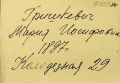 Гришкевич
Мария Иосифовна
1897г.
Колодезная 29